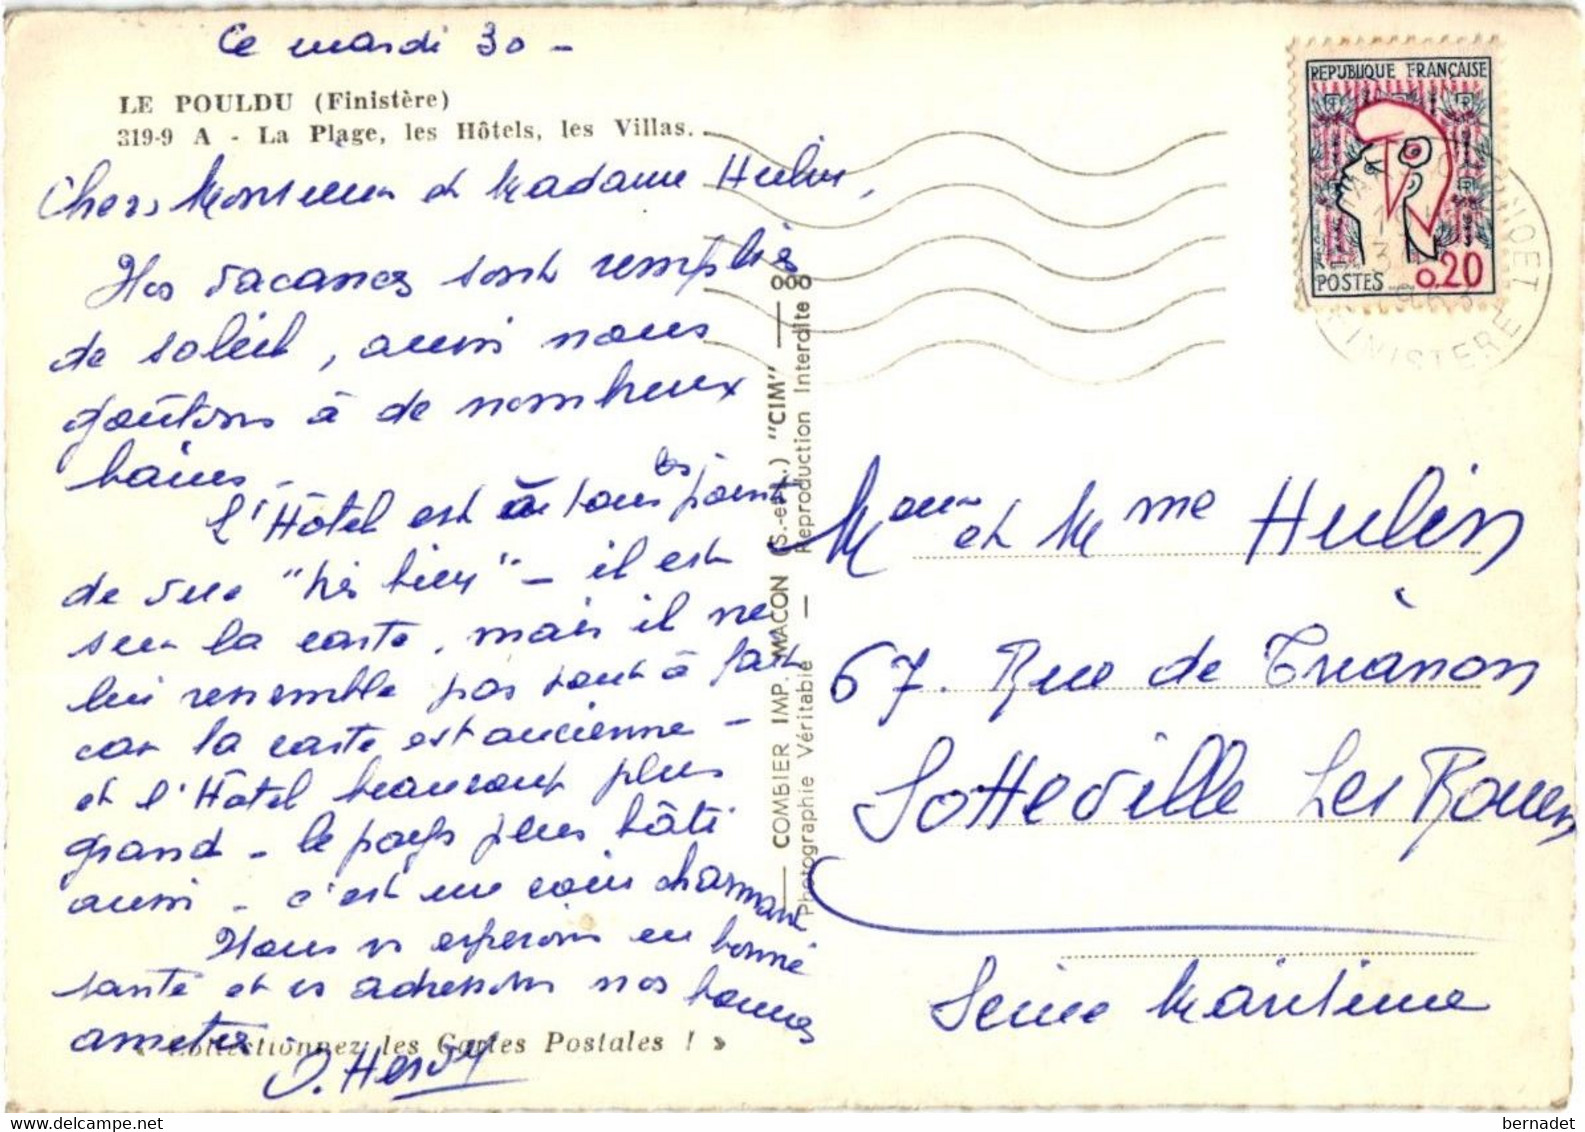 Ce mardi 30 -
LE POULDU (Finistère)
319-9 A - La Plage, les Hôtels, les Villas.
Chers Monsieur et Madame Hulin,
Nos vacances sont remplies
de soleil, aussi nous
goûtons à de nombreux
bains -
L'Hôtel est à tous les points
de vue "très bien" - il est
sur la carte, mais il ne
lui ressemble pas tout à fait
car la carte est ancienne -
et l'Hôtel beaucoup plus
grand - le pays plus bâti
aussi - c'est un coin charmant
Nous vs espérons en bonne
santé et vs adressons nos bonnes
amitiés
« Collectionnez les Cartes Postales ! »
O. Hervy
COMBIER IMP. MACON (S.-et-L.) "CIM"
Photographie Véritable — Reproduction Interdite
REPUBLIQUE FRANÇAISE
POSTES 0,20
FINISTERE
Monsieur et Mme Hulin
67. Rue de Trianon
Sotteville Les Rouen
Seine Maritime
hipostcard.com
bernadet